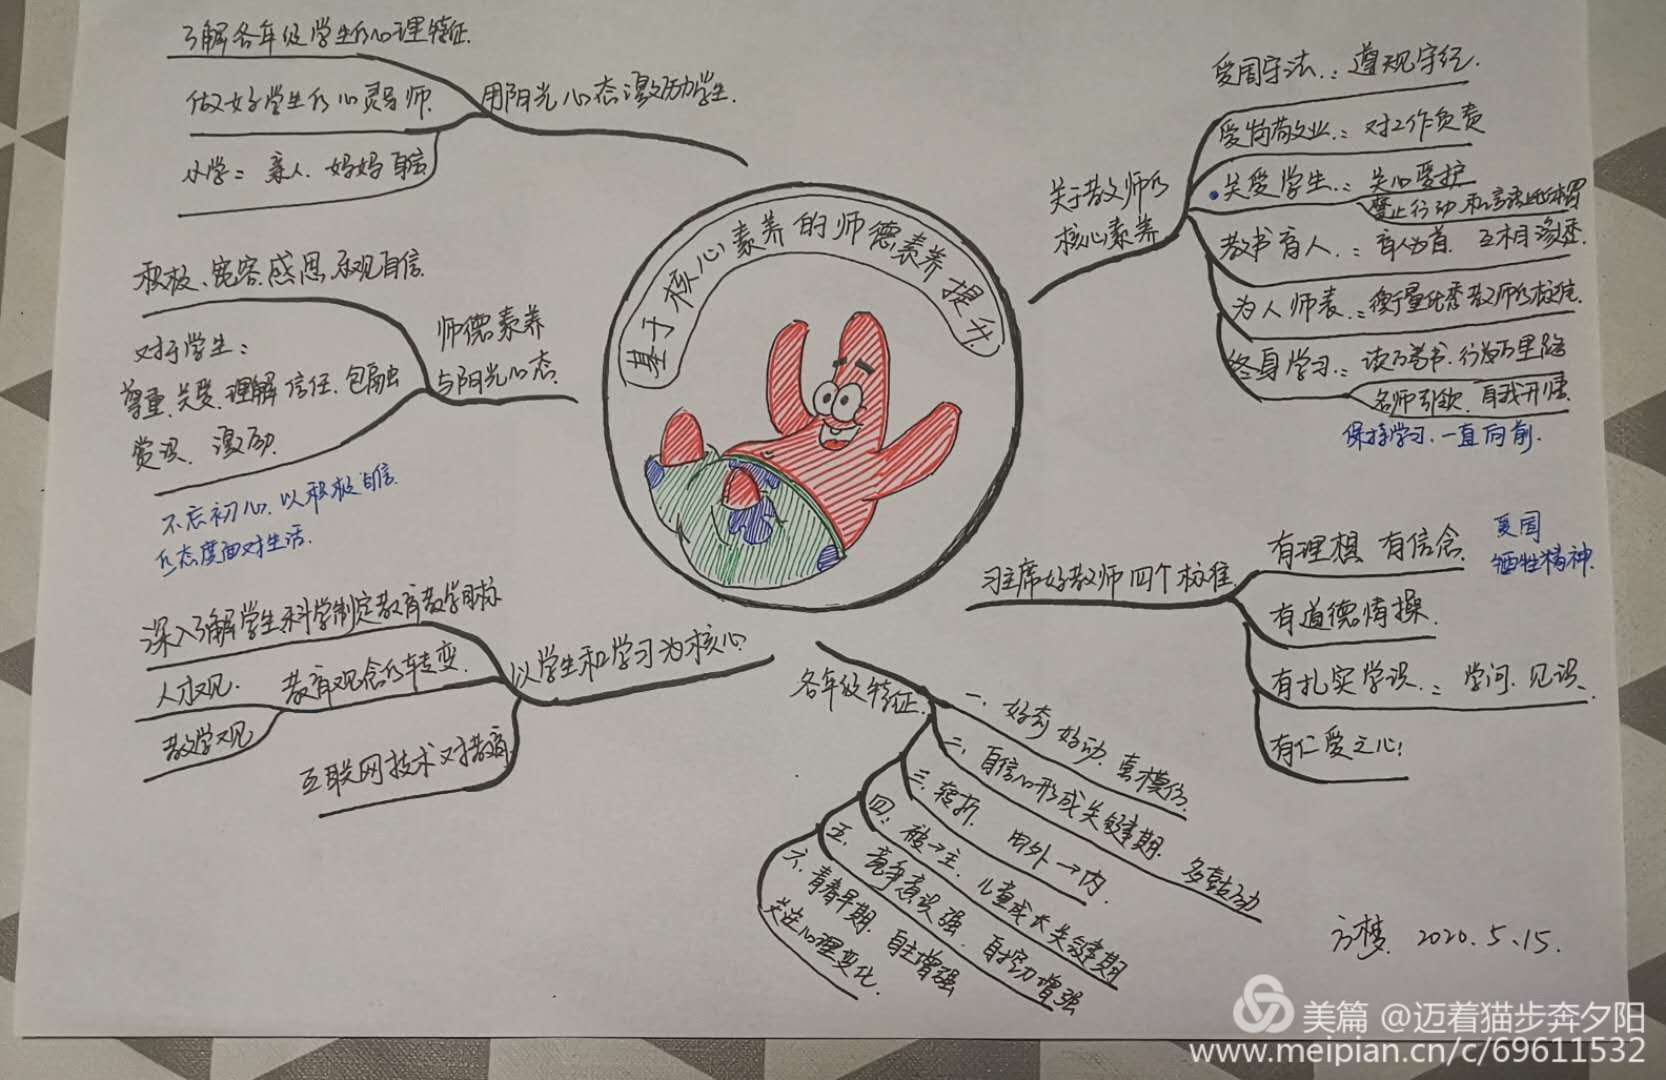 基于核心素养的师德素养提升
关于教师的
核心素养
爱国守法：遵规守纪.
爱岗敬业：对工作负责
关爱学生：关心爱护
禁止行动和言语
教书育人：育人为首. 互相渗透.
为人师表：衡量优秀教师的标准.
终身学习：读万卷书. 行万里路
名师引领. 自我开悟
保持学习. 一直向前.
习主席好教师四个标准.
有理想 有信念.
爱国
牺牲精神.
有道德情操.
有扎实学识：学问. 见识.
有仁爱之心!
各年级特征.
一、好奇 好动. 喜模仿.
二、自信心形成关键期. 多鼓励
三、转折. 由外→内.
四、被→主. 儿童成长关键期
五、竞争意识强. 自控力增强
六、青春早期. 自主增强
关注心理变化.
以学生和学习为核心.
深入了解学生科学制定教育教学目标
人才观. 教育观念的转变.
教学观
互联网技术对教育
师德素养
与阳光心态.
积极、宽容、感恩、乐观自信.
对于学生：
尊重、关爱、理解 信任、包融
赏识、激励.
不忘初心. 以积极自信.
的态度面对生活.
用阳光心态激励学生.
了解各年级学生的心理特征.
做好学生的心灵导师.
小学：亲人. 妈妈 自信
方梦. 2020.5.15.
美篇 @迈着猫步奔夕阳
www.meipian.cn/c/69611532